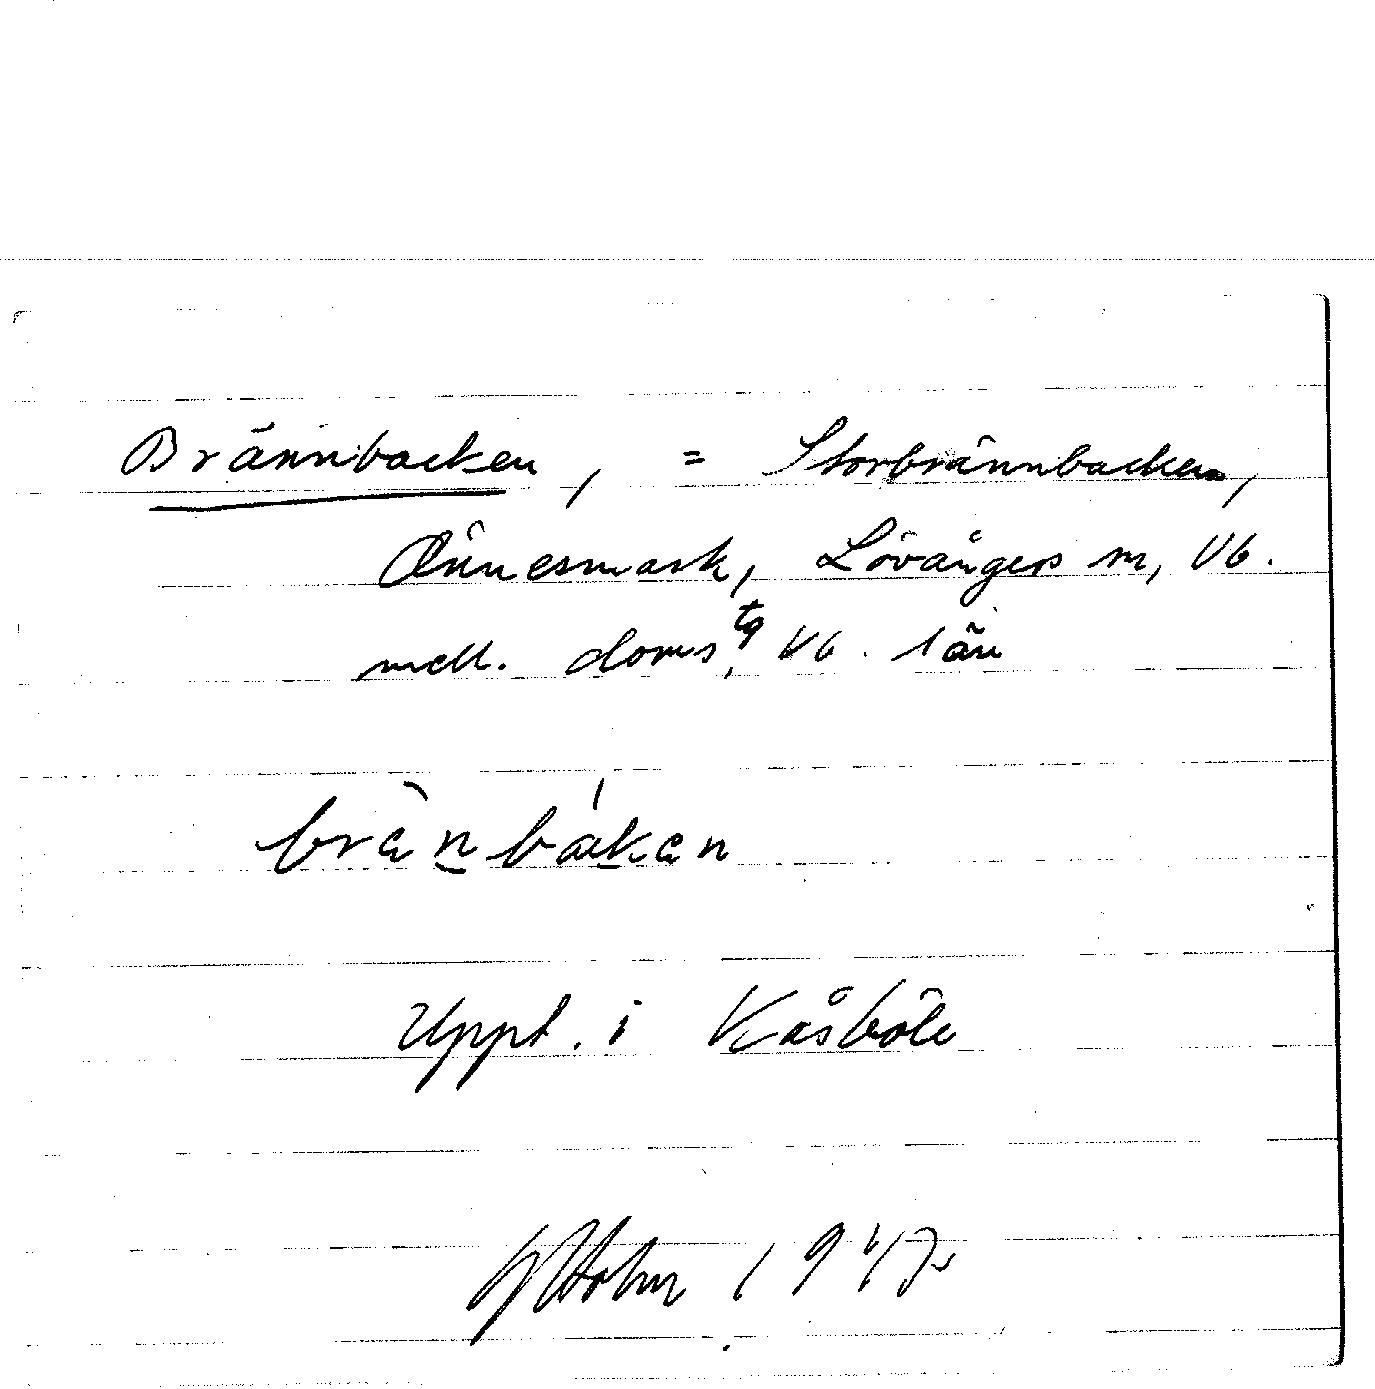 Brännbacken, = Storbrännbacken,
Önnesmark, Lövångers sn, Vb.
mell. doms.tg Vb. län
bränbáken
Uppt. i Kåsböle
Holm 1947